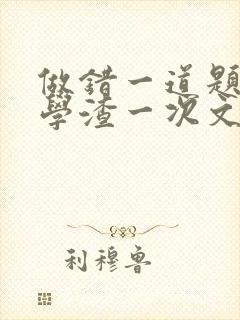 做錯一道題
學渣一次文
利穆魯